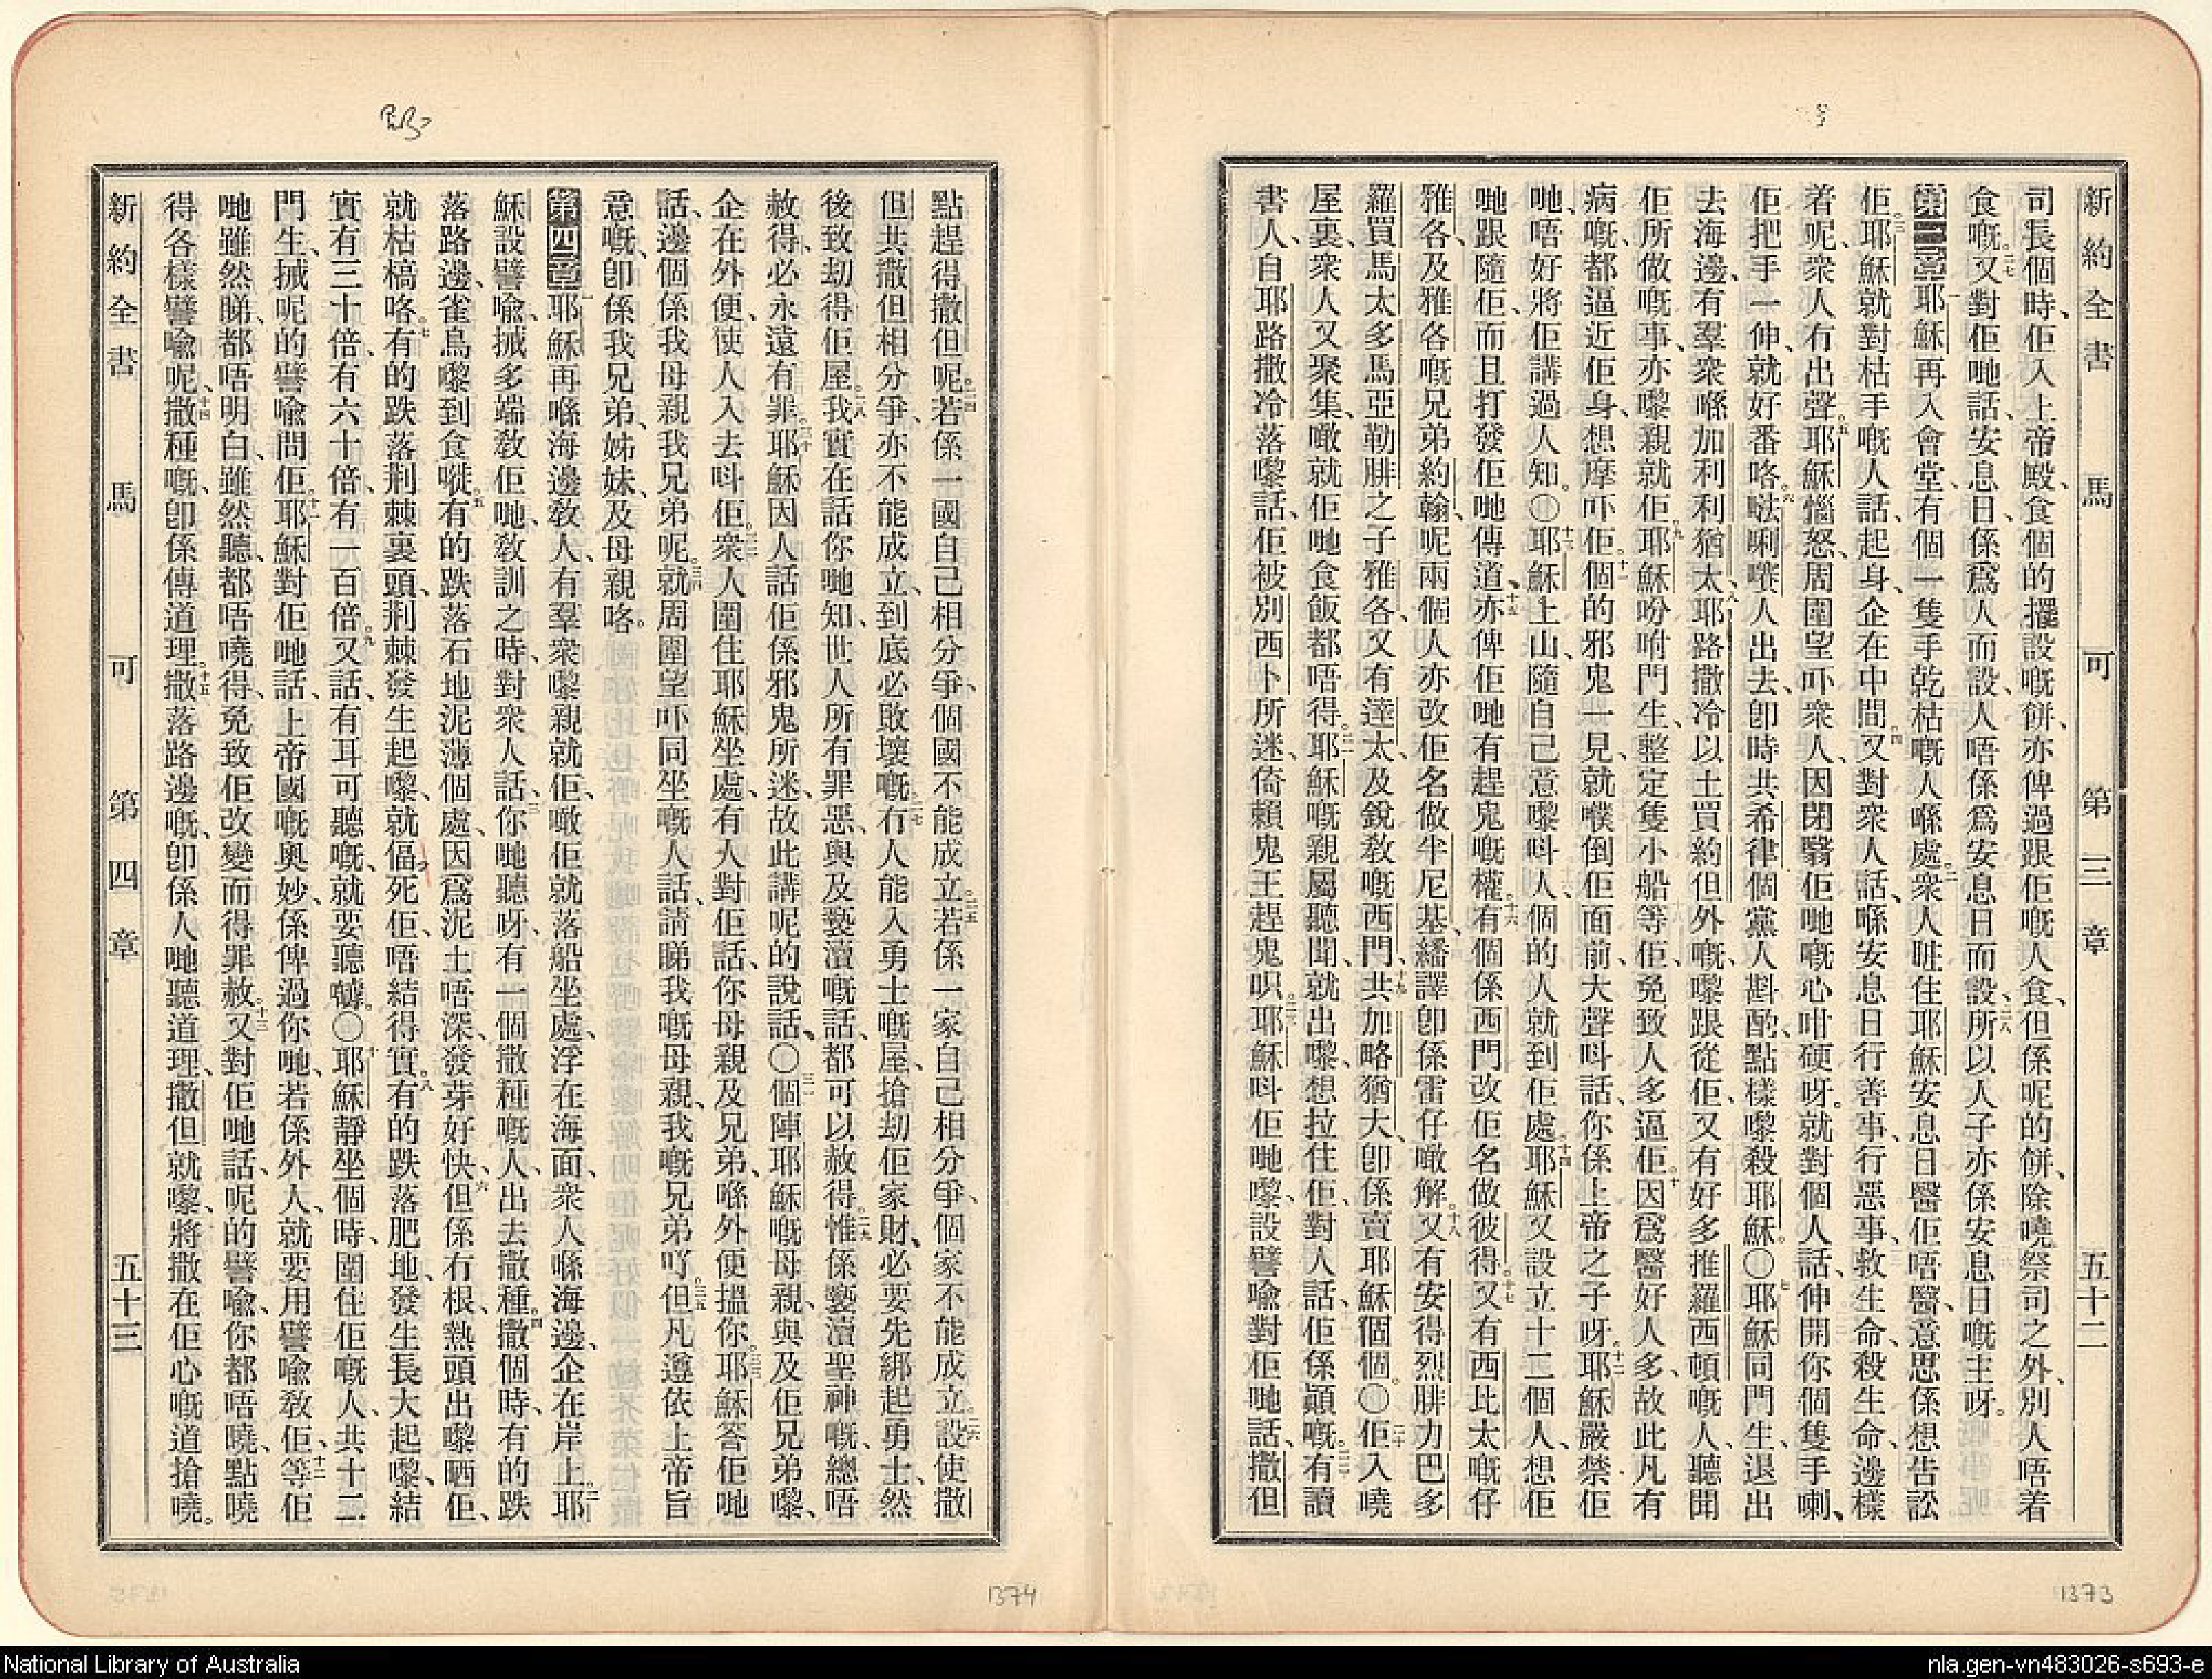 新約全書 馬可 第三章 五十二
司長個時、佢入上帝殿、食個的擺設嘅餅、亦俾過跟佢嘅人食、但係呢的餅、除曉祭司之外、別人唔着
食嘅。二七又對佢哋話、安息日、係爲人而設、人唔係爲安息日而設、二八所以人子亦係安息日嘅主呀。
第三章 一耶穌再入會堂、有個一隻手乾枯嘅人喺處。二衆人眐住耶穌安息日醫佢唔醫、意思係想告訟
佢。三耶穌就對枯手嘅人話、起身、企在中間。四又對衆人話、喺安息日行善事、行惡事、救生命、殺生命、邊樣
着呢、衆人冇出聲。五耶穌惱怒、周圍望吓衆人、因閉翳佢哋嘅心咁硬呀。就對個人話、伸開你個隻手喇、
佢把手一伸、就好番咯。六𠵽唎㘔人出去、卽時共希律個黨人斟酌、點樣嚟殺耶穌。〇七耶穌同門生、退出
去海邊、有羣衆喺加利利猶太、八耶路撒冷以土買約但外嘅、嚟跟從佢、又有好多推羅西頓嘅人、聽聞
佢所做嘅事、亦嚟親就佢。九耶穌吩咐門生、整定隻小船等佢、免致人多逼佢。十因爲醫好人多、故此凡有
病嘅、都逼近佢身、想摩吓佢。十一個的邪鬼一見、就㒒倒佢面前、大聲呌話、你係上帝之子呀。十二耶穌嚴禁佢
哋、唔好將佢講過人知。〇十三耶穌上山、隨自己意嚟呌人、個的人就到佢處。十四耶穌又設立十二個人、想佢
哋跟隨佢、而且打發佢哋傳道、十五亦俾佢哋有趕鬼嘅權。十六有個係西門改佢名做彼得。十七又有西比太嘅仔
雅各、及雅各嘅兄弟約翰、呢兩個人亦改佢名做半尼基、繙譯卽係雷仔噉解。十八又有安得烈腓力巴多
羅買馬太多馬亞勒腓之子雅各、又有達太、及銳敎嘅西門、十九共加略猶大、卽係賣耶穌個個。〇二十佢入曉
屋裏、衆人又聚集、噉就佢哋食飯都唔得。二一耶穌嘅親屬聽聞、就出嚟、想拉住佢、對人話、佢係顚嘅。二二有讀
書人、自耶路撒冷落嚟話、佢被別西卜所迷、倚賴鬼王趕鬼呮。二三耶穌呌佢哋嚟、設譬喩對佢哋話、撒但
1373
新約全書 馬可 第四章 五十三
點趕得撒但呢。二四若係一國自己相分爭、個國不能成立。二五若係一家自己相分爭、個家不能成立。二六設使撒
但共撒但相分爭、亦不能成立、到底必敗壞嘅。二七冇人能入勇士嘅屋、搶劫佢家財、必要先綁起勇士、然
後致劫得佢屋。二八我實在話你哋知、世人所有罪惡、與及褻瀆嘅話、都可以赦得。二九惟係褻瀆聖神嘅、總唔
赦得、必永遠有罪。三十耶穌因人話佢係邪鬼所迷、故此講呢的說話。〇三一個陣耶穌嘅母親、與及佢兄弟嚟、
企在外便、使人入去呌佢。三二衆人圍住耶穌坐處、有人對佢話、你母親及兄弟、喺外便搵你。三三耶穌答佢哋
話、邊個係我母親我兄弟呢。三四就周圍望吓同坐嘅人話、請睇我嘅母親、我嘅兄弟吖。三五但凡遵依上帝旨
意嘅、卽係我兄弟、姊妹、及母親咯。
第四章 一耶穌再喺海邊敎人、有羣衆嚟親就佢、噉佢就落船坐處、浮在海面、衆人喺海邊、企在岸上。二耶
穌設譬喩、搣多端敎佢哋、敎訓之時、對衆人話、三你哋聽呀、有一個撒種嘅人、出去撒種。四撒個時、有的跌
落路邊、雀鳥嚟到食嘥。五有的跌落石地泥薄個處、因爲泥土唔深、發芽好快、六但係冇根、熱頭出嚟晒佢、
就枯槁咯。七有的跌落荆棘裏頭、荆棘發生起嚟、就偪死佢、唔結得實。八有的跌落肥地、發生長大起嚟、結
實有三十倍、有六十倍、有一百倍。九又話、有耳可聽嘅、就要聽嚹。〇十耶穌靜坐個時、圍住佢嘅人、共十二
門生、搣呢的譬喩問佢。十一耶穌對佢哋話、上帝國嘅奥妙、係俾過你哋、若係外人、就要用譬喩敎佢、十二等佢
哋雖然睇、都唔明白、雖然聽、都唔曉得、免致佢改變而得罪赦。十三又對佢哋話、呢的譬喩、你都唔曉、點曉
得各樣譬喩呢、十四撒種嘅、卽係傳道理。十五撒落路邊嘅、卽係人哋聽道理、撒但就嚟、將撒在佢心嘅道搶曉。
1374
National Library of Australia
nla.gen-vn483026-s693-e